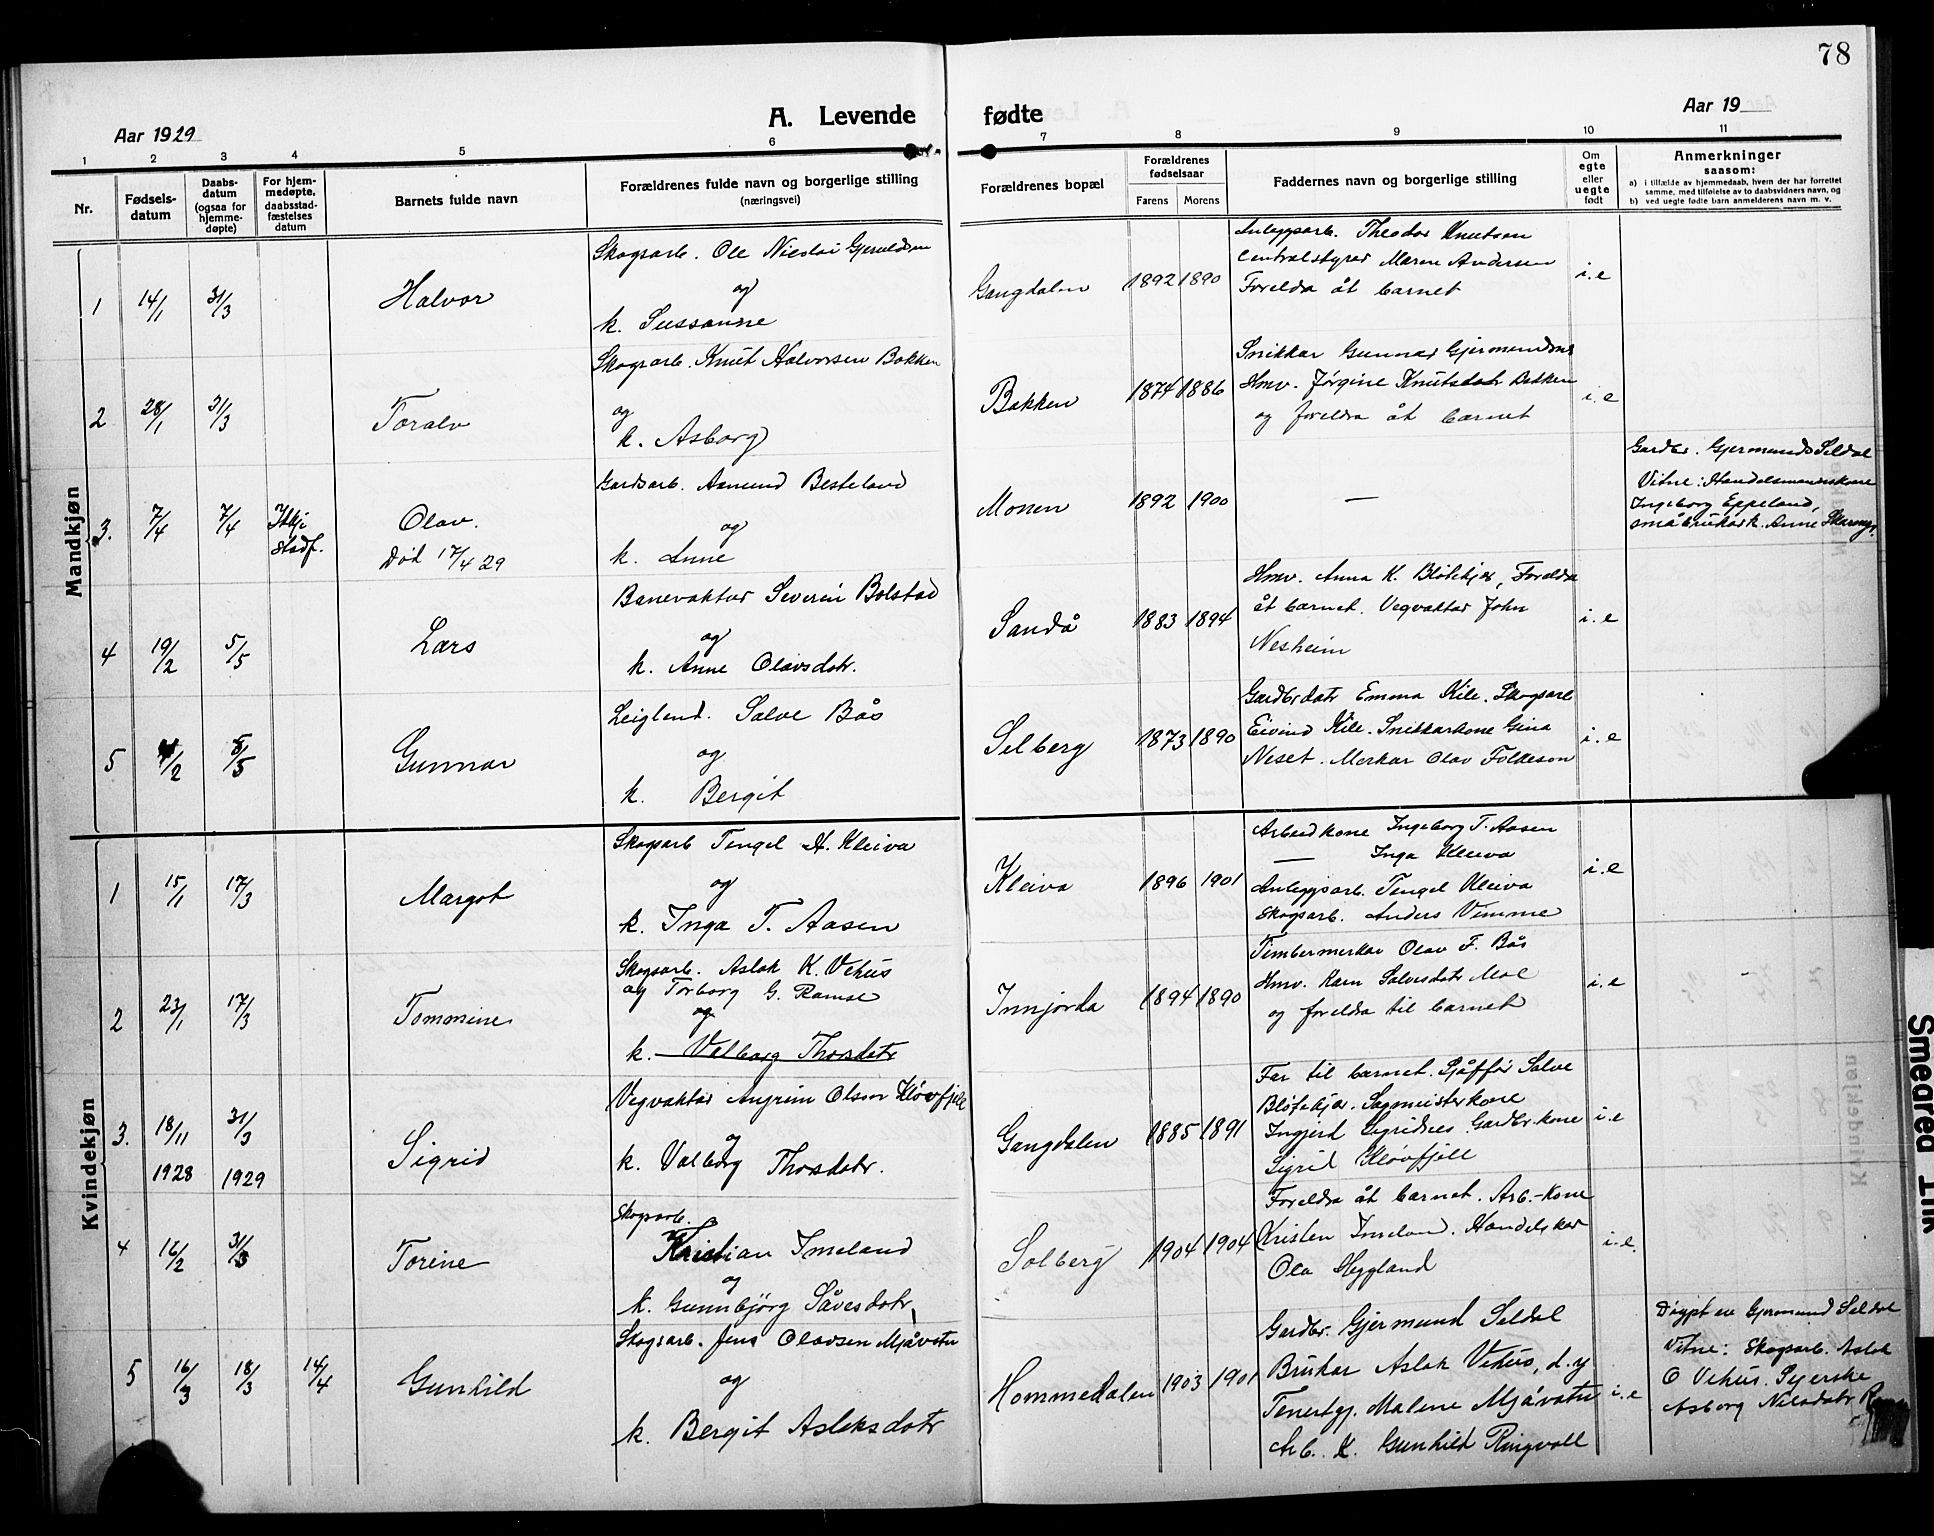 78
Aar 1929
A. Levende fødte
Aar 19
1 2 3 4 5 6 7 8 9 10 11
Nr.
Fødsels-
datum
Daabs-
datum
(ogsaa for
hjemme-
døpte)
For hjem-
medøpte,
daabsstad-
fæstelses
datum
Barnets fulde navn
Forældrenes fulde navn og borgerlige stilling
(næringsvei)
Forældrenes bopæl
Forældrenes
fødselsaar
Farens Morens
Faddernes navn og borgerlige stilling
Om
egte
eller
uegte
født
Anmerkninger
saasom:
a) i tilfælde av hjemmedaab, hvem der har forrettet
samme, med tilføielse av to daabsvidners navn, og
b) ved uegte fødte barn anmelderens navn m. v.
Mandkjøn
1 14/1 31/3 Halvor
Skogsarb. Ole Nicolai Gjeruldsen
og
k. Sussanne
Gangdalen 1892 1890
Anleggsarb. Theodor Knutsen
Centralstyrar Maren Andersen
Foreldra åt barnet
i. e
2 28/1 31/3 Toralv
Skogsarb. Knut Halvorsen Bakken
og
k. Asborg
Bakken 1874 1886
Snikkar Gunnar Gjermundsen
Hmv. Jørgine Knutsdotr Bakken
og foreldra åt barnet
i. e
3. 7/4 7/4 Ikkje
stadf.
Olav.
Død 17/4 29
Gardsarb. Aamund Besteland
og
k. Anne
Monen 1892 1900
—
Gardbr. Gjermund Seldal
Vitne: Handelsmannskone
Ingeborg Eppeland,
småbrukark. Anne
4 19/2 5/5 Lars
Banevaktar Severin Bolstad
og
k. Anne Olavsdotr.
Sandå 1883 1894
Hmv. Anna K. Bløtekjær, Foreldra
åt barnet. Vegvaktar John
Nesheim
i. e
5 4/2 5/5 Gunnar
Leiglend. Salve Bås
og
k. Bergit
Selberg 1873 1890
Gardbrdotr Emma Kile. Skogsarb
Eivind Kile. Snikkarkone Gina
Neset. Merkar Olav Folkeson
i. e
Kvindekjøn
1 15/1 17/3 Margot
Skogsarb Tengel A. Kleiva
og
k. Inga T. Aasen
Kleiva 1896 1901
Arbeidkone Ingeborg T. Aasen
— Inga Kleiva
Anleggsarb. Tengel Kleiva
Skogsarb. Anders Vimme
i. e
2 23/1 17/3 Tommine
Skogsarb. Aslak K. Vehus
og Torborg G. Ramse
og
k. Valborg Thorsdotr
Innjorda 1894 1890
Timbermerkar Olav F. Bås
Hmv. Karn Salvesdotr Moe
og foreldra til barnet
i. e
3. 18/11 31/3
1928 1929
Sigrid
Vegvaktar Angrim Olsson Kløvfjell
og
k. Valborg Thorsdotr.
Gangdalen 1885 1891
Far til barnet. Sjåffør Salve
Bløtekjær. Sagmeisterkone
Ingjerd Sigridnes. Gardbr.kone
Sigrid Kløvfjell
i. e
4 16/2 31/3 Torine
Skogsarb.
Kristian Imeland
og
k. Gunnbjørg Såvesdotr.
Solberg 1904 1904
Foreldra åt barnet. Arb.-kone
Kristen Imeland. Handelskar
Ola Heggland
i. e.
5 16/3 18/3 14/4 Gunhild
Skogsarb. Jens Olavsen Mjåvatn
og
k. Bergit Aslaksdotr
Hommedalen 1903 1901
Gardbr. Gjermund Seldal
Brukar Aslak Vehus, d.y
Tenestgj. Malene Mjåvatn
Arb. K. Gunhild Ringvoll
i. e
Døypt av Gjermund Seldal
Vitne: Skogsarb. Aslak
O Vehus. Syerske
Asborg Nilsdotr
Smeared Ink